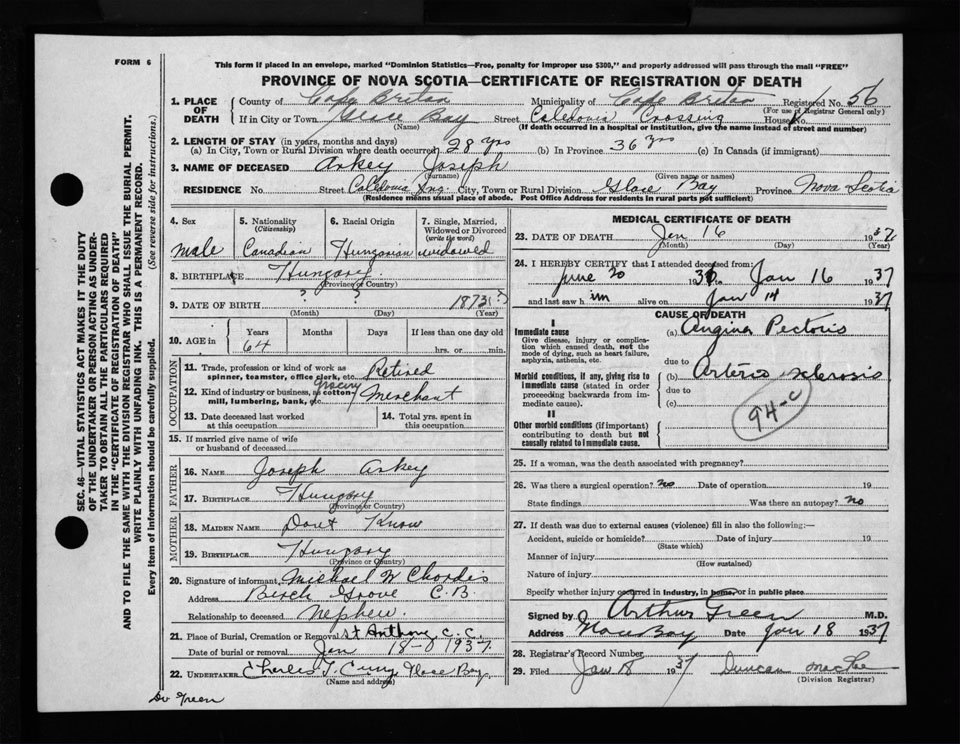 FORM 6
This form if placed in an envelope, marked "Dominion Statistics—Free, penalty for improper use $300," and properly addressed will pass through the mail "FREE"
PROVINCE OF NOVA SCOTIA—CERTIFICATE OF REGISTRATION OF DEATH
SEC. 46—VITAL STATISTICS ACT MAKES IT THE DUTY
OF THE UNDERTAKER OR PERSON ACTING AS UNDER-
TAKER TO OBTAIN ALL THE PARTICULARS REQUIRED
IN THE "CERTIFICATE OF REGISTRATION OF DEATH"
AND TO FILE THE SAME WITH THE DIVISION REGISTRAR WHO SHALL ISSUE THE BURIAL PERMIT.
WRITE PLAINLY WITH UNFADING INK. THIS IS A PERMANENT RECORD.
Every item of information should be carefully supplied. (See reverse side for instructions.)
1. PLACE OF DEATH
County of Cape Breton Municipality of Cape Breton Registered No. 56
(For use of Registrar General only)
If in City or Town Glace Bay Street Caledonia Crossing House No.
(Name) (If death occurred in a hospital or institution, give the name instead of street and number)
2. LENGTH OF STAY (in years, months and days)
(a) In City, Town or Rural Division where death occurred 28 yrs (b) In Province 36 yrs (c) In Canada (if immigrant)
3. NAME OF DECEASED Arkey Joseph
(Surname) (Given name or names)
RESIDENCE No. Street Caledonia Xng. City, Town or Rural Division Glace Bay Province Nova Scotia
(Residence means usual place of abode. Post Office Address for residents in rural parts not sufficient)
4. Sex
male
5. Nationality
(Citizenship)
Canadian
6. Racial Origin
Hungarian
7. Single, Married,
Widowed or Divorced
(write the word)
widowed
8. BIRTHPLACE Hungary
(Province or Country)
9. DATE OF BIRTH ? ? 1873(?)
(Month) (Day) (Year)
10. AGE in
Years Months Days If less than one day old
64 hrs. or min.
OCCUPATION
11. Trade, profession or kind of work as
spinner, teamster, office clerk, etc. Retired
12. Kind of industry or business, as cotton-
mill, lumbering, bank, etc. grocery Merchant
13. Date deceased last worked
at this occupation
14. Total yrs. spent in
this occupation
15. If married give name of wife
or husband of deceased
FATHER
16. NAME Joseph Arkey
17. BIRTHPLACE Hungary
(Province or Country)
MOTHER
18. MAIDEN NAME Dont Know
19. BIRTHPLACE Hungary
(Province or Country)
20. Signature of informant Michael W Chordis
Address Birch Grove C.B.
Relationship to deceased nephew.
21. Place of Burial, Cremation or Removal St Anthony C.C.
Date of burial or removal Jan 18-1937.
22. UNDERTAKER Charles T. Curry Glace Bay
(Name and address)
Dr Green
MEDICAL CERTIFICATE OF DEATH
23. DATE OF DEATH Jan 16 1937
(Month) (Day) (Year)
24. I HEREBY CERTIFY that I attended deceased from:
June 20 193 to Jan 16 1937
and last saw h im alive on Jan 14 1937
CAUSE OF DEATH
I
Immediate cause
Give disease, injury or complica-
tion which caused death, not the
mode of dying, such as heart failure,
asphyxia, asthenia, etc.
(a) Angina Pectoris
due to
Morbid conditions, if any, giving rise to
immediate cause (stated in order
proceeding backwards from im-
mediate cause).
(b) Arterio sclerosis
due to
(c)
94-c
II
Other morbid conditions (if important)
contributing to death but not
causally related to immediate cause.
25. If a woman, was the death associated with pregnancy?
26. Was there a surgical operation? no Date of operation 19
State findings Was there an autopsy? no
27. If death was due to external causes (violence) fill in also the following:—
Accident, suicide or homicide? Date of injury 19
(State which)
Manner of injury
(How sustained)
Nature of injury
Specify whether injury occurred in industry, in home, or in public place
Signed by Arthur Green M.D.
Address Glace Bay Date Jan 18 1937
28. Registrar's Record Number
29. Filed Jan 18 1937 Duncan
(Division Registrar)